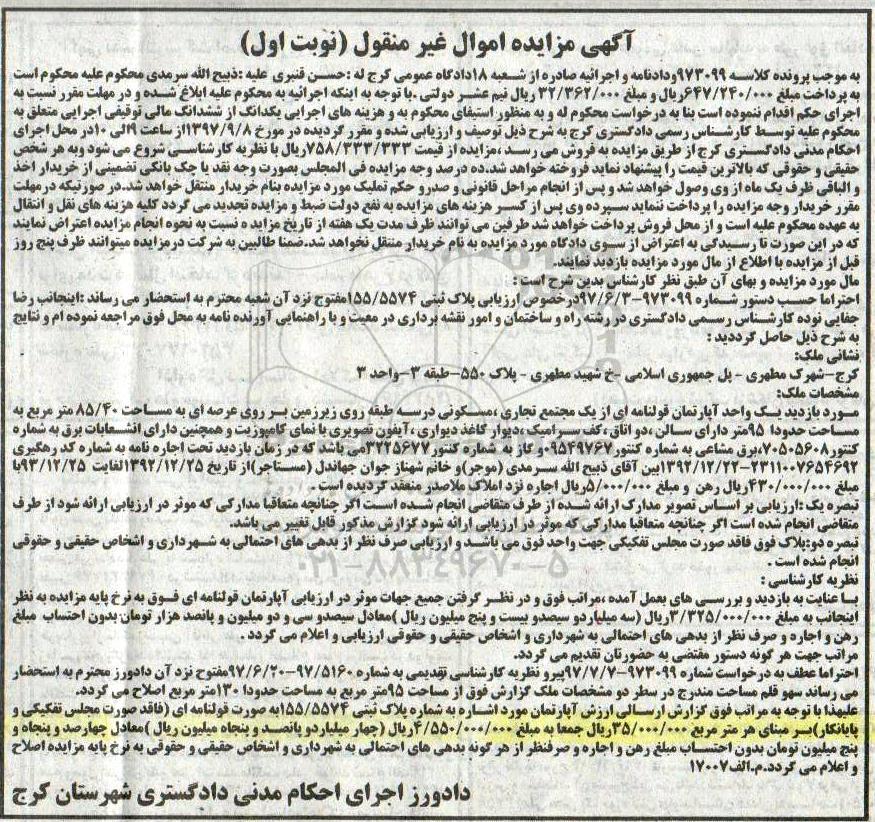 آگهی مزایده اموال غیر منقول (نوبت اول)
به موجب پرونده کلاسه ۹۷۳۰۹۹ودادنامه و اجرائیه صادره از شعبه ۱۸دادگاه عمومی کرج له :حسن قنبری علیه :ذبیح الله سرمدی محکوم علیه محکوم است
به پرداخت مبلغ ۶۴۷/۲۴۰/۰۰۰ریال و مبلغ ۳۲/۳۶۲/۰۰۰ ریال نیم عشر دولتی .با توجه به اینکه اجرائیه به محکوم علیه ابلاغ شده و در مهلت مقرر نسبت به
اجرای حکم اقدام ننموده است بنا به درخواست محکوم له و به منظور استیفای محکوم به و هزینه های اجرایی یکدانگ از ششدانگ مالی توقیفی اجرایی متعلق به
محکوم علیه توسط کارشناس رسمی دادگستری کرج به شرح ذیل توصیف و ارزیابی شده و مقرر گردیده در مورخ ۱۳۹۷/۹/۸از ساعت ۹الی ۱۰در محل اجرای
احکام مدنی دادگستری کرج از طریق مزایده به فروش می رسد ،مزایده از قیمت ۷۵۸/۳۳۳/۳۳۳ریال با نظریه کارشناسی شروع می شود وبه هر شخص
حقیقی و حقوقی که بالاترین قیمت را پیشنهاد نماید فروخته خواهد شد.ده درصد وجه مزایده فی المجلس بصورت وجه نقد یا چک بانکی تضمینی از خریدار اخذ
و الباقی ظرف یک ماه از وی وصول خواهد شد و پس از انجام مراحل قانونی و صدرو حکم تملیک مورد مزایده بنام خریدار منتقل خواهد شد.در صورتیکه در مهلت
مقرر خریدار وجه مزایده را پرداخت ننماید سپرده وی پس از کسر هزینه های مزایده به نفع دولت ضبط و مزایده تجدید می گردد کلیه هزینه های نقل و انتقال
به عهده محکوم علیه است و از محل فروش پرداخت خواهد شد طرفین می توانند ظرف مدت یک هفته از تاریخ مزایده نسبت به نحوه انجام مزایده اعتراض نمایند
که در این صورت تا رسیدگی به اعتراض از سوی دادگاه مورد مزایده به نام خریدار منتقل نخواهد شد.ضمنا طالبین به شرکت در مزایده میتوانند ظرف پنج روز
قبل از مزایده با اطلاع از مال مورد مزایده بازدید نمایند.
مال مورد مزایده و بهای آن طبق نظر کارشناس بدین شرح است :
احتراما حسب دستور شماره ۹۷۳۰۹۹-۹۷/۶/۳درخصوص ارزیابی پلاک ثبتی ۱۵۵/۵۵۷۴مفتوح نزد آن شعبه محترم به استحضار می رساند :اینجانب رضا
جفایی نوده کارشناس رسمی دادگستری در رشته راه و ساختمان و امور نقشه برداری در معیت و با راهنمایی آورنده نامه به محل فوق مراجعه نموده ام و نتایج
به شرح ذیل حاصل گرددید :
نشانی ملک:
کرج-شهرک مطهری - پل جمهوری اسلامی -خ شهید مطهری - پلاک ۵۵۰-طبقه ۳-واحد ۳
مشخصات ملک:
مورد بازدید یک واحد آپارتمان قولنامه ای از یک مجتمع تجاری ،مسکونی درسه طبقه روی زیرزمین بر روی عرصه ای به مساحت ۸۵/۴۰ متر مربع به
مساحت حدودا ۹۵متر دارای سالن ،دو اتاق ،کف سرامیک ،دیوار کاغذ دیواری ،آیفون تصویری با نمای کامپوزیت و همچنین دارای انشعابات برق به شماره
کنتور ۷۰۵۰۵۶۰۸،برق مشاعی به شماره کنتور ۰۹۵۴۹۷۶۷و گاز به شماره کنتور ۳۲۲۵۶۷۷می باشد که در زمان بازدید تحت اجاره نامه به شماره کد رهگیری
۲۳۱۱۰۰۷۶۵۴۶۹۲-۱۳۹۲/۱۲/۲۲بین آقای ذبیح الله سرمدی (موجر)و خانم شهناز جوان جهاندل (مستاجر)از تاریخ ۱۳۹۲/۱۲/۲۵لغایت ۹۳/۱۲/۲۵با
مبلغ ۴۳۰/۰۰۰/۰۰۰ریال رهن و مبلغ ۵/۰۰۰/۰۰۰ریال اجاره نزد املاک ملاصدر منعقد گردیده است .
تبصره یک :ارزیابی بر اساس تصویر مدارک ارائه شده از طرف متقاضی انجام شده است اگر چنانچه متعاقبا مدارکی که موثر در ارزیابی ارائه شود از طرف
متقاضی انجام شده است اگر چنانچه متعاقبا مدارکی که موثر در ارزیابی ارائه شود گزارش مذکور قابل تغییر می باشد.
تبصره دو:پلاک فوق فاقد صورت مجلس تفکیکی جهت واحد فوق می باشد و ارزیابی صرف نظر از بدهی های احتمالی به شهرداری و اشخاص حقیقی و حقوقی
انجام شده است .
نظریه کارشناسی :
با عنایت به بازدید و بررسی های بعمل آمده ،مراتب فوق و در نظر گرفتن جمیع جهات موثر در ارزیابی آپارتمان قولنامه ای فوق به نرخ پایه مزایده به نظر
اینجانب به مبلغ ۳/۳۲۵/۰۰۰/۰۰۰ریال (سه میلیاردو سیصدو بیست و پنج میلیون ریال )معادل سیصدو سی و دو میلیون و پانصد هزار تومان-بدون احتساب مبلغ
رهن و اجاره و صرف نظر از بدهی های احتمالی به شهرداری و اشخاص حقیقی و حقوقی ارزیابی و اعلام می گردد .
مراتب جهت هر گونه دستور مقتضی به حضورتان تقدیم می گردد.
احتراما عطف به درخواست شماره ۹۷۳۰۹۹-۹۷/۷/۷پیرو نظریه کارشناسی تقدیمی به شماره ۹۷/۵۱۶۰-۹۷/۶/۲۰مفتوح نزد آن دادورز محترم به استحضار
می رساند سهو قلم مساحت مندرج در سطر دو مشخصات ملک گزارش فوق از مساحت ۹۵متر مربع به مساحت حدودا ۱۳۰متر مربع اصلاح می گردد.
علیهذا با توجه به مراتب فوق گزارش ارسالی ارزش آپارتمان مورد اشاره به شماره پلاک ثبتی ۱۵۵/۵۵۷۴به صورت قولنامه ای (فاقد صورت مجلس تفکیکی و
پایانکار)بر مبنای هر متر مربع ۳۵/۰۰۰/۰۰۰ریال جمعا به مبلغ ۴/۵۵۰/۰۰۰/۰۰۰ریال (چهار میلیاردو پانصد و پنجاه میلیون ریال )معادل چهارصد و پنجاه و
پنج میلیون تومان بدون احتساب مبلغ رهن و اجاره و صرفنظر از هر گونه بدهی های احتمالی به شهرداری و اشخاص حقیقی و حقوقی به نرخ پایه مزایده اصلاح
و اعلام می گردد.م.الف۱۷۰۰۷
دادورز اجرای احکام مدنی دادگستری شهرستان کرج
۰۲۱-۸۸۳۴۹۶۷۰-۵